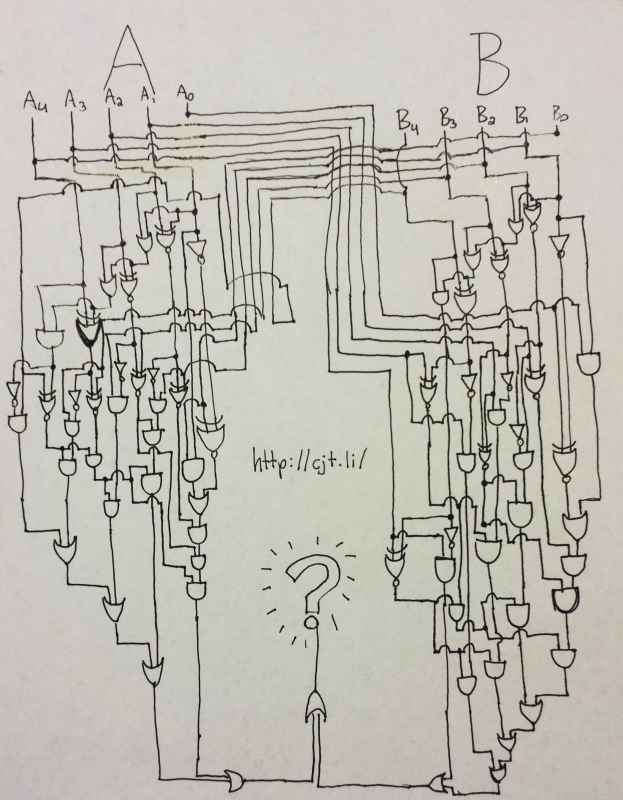 A B
A4 A3 A2 A1 A0
B4 B3 B2 B1 B0
http://cjt.li/
?